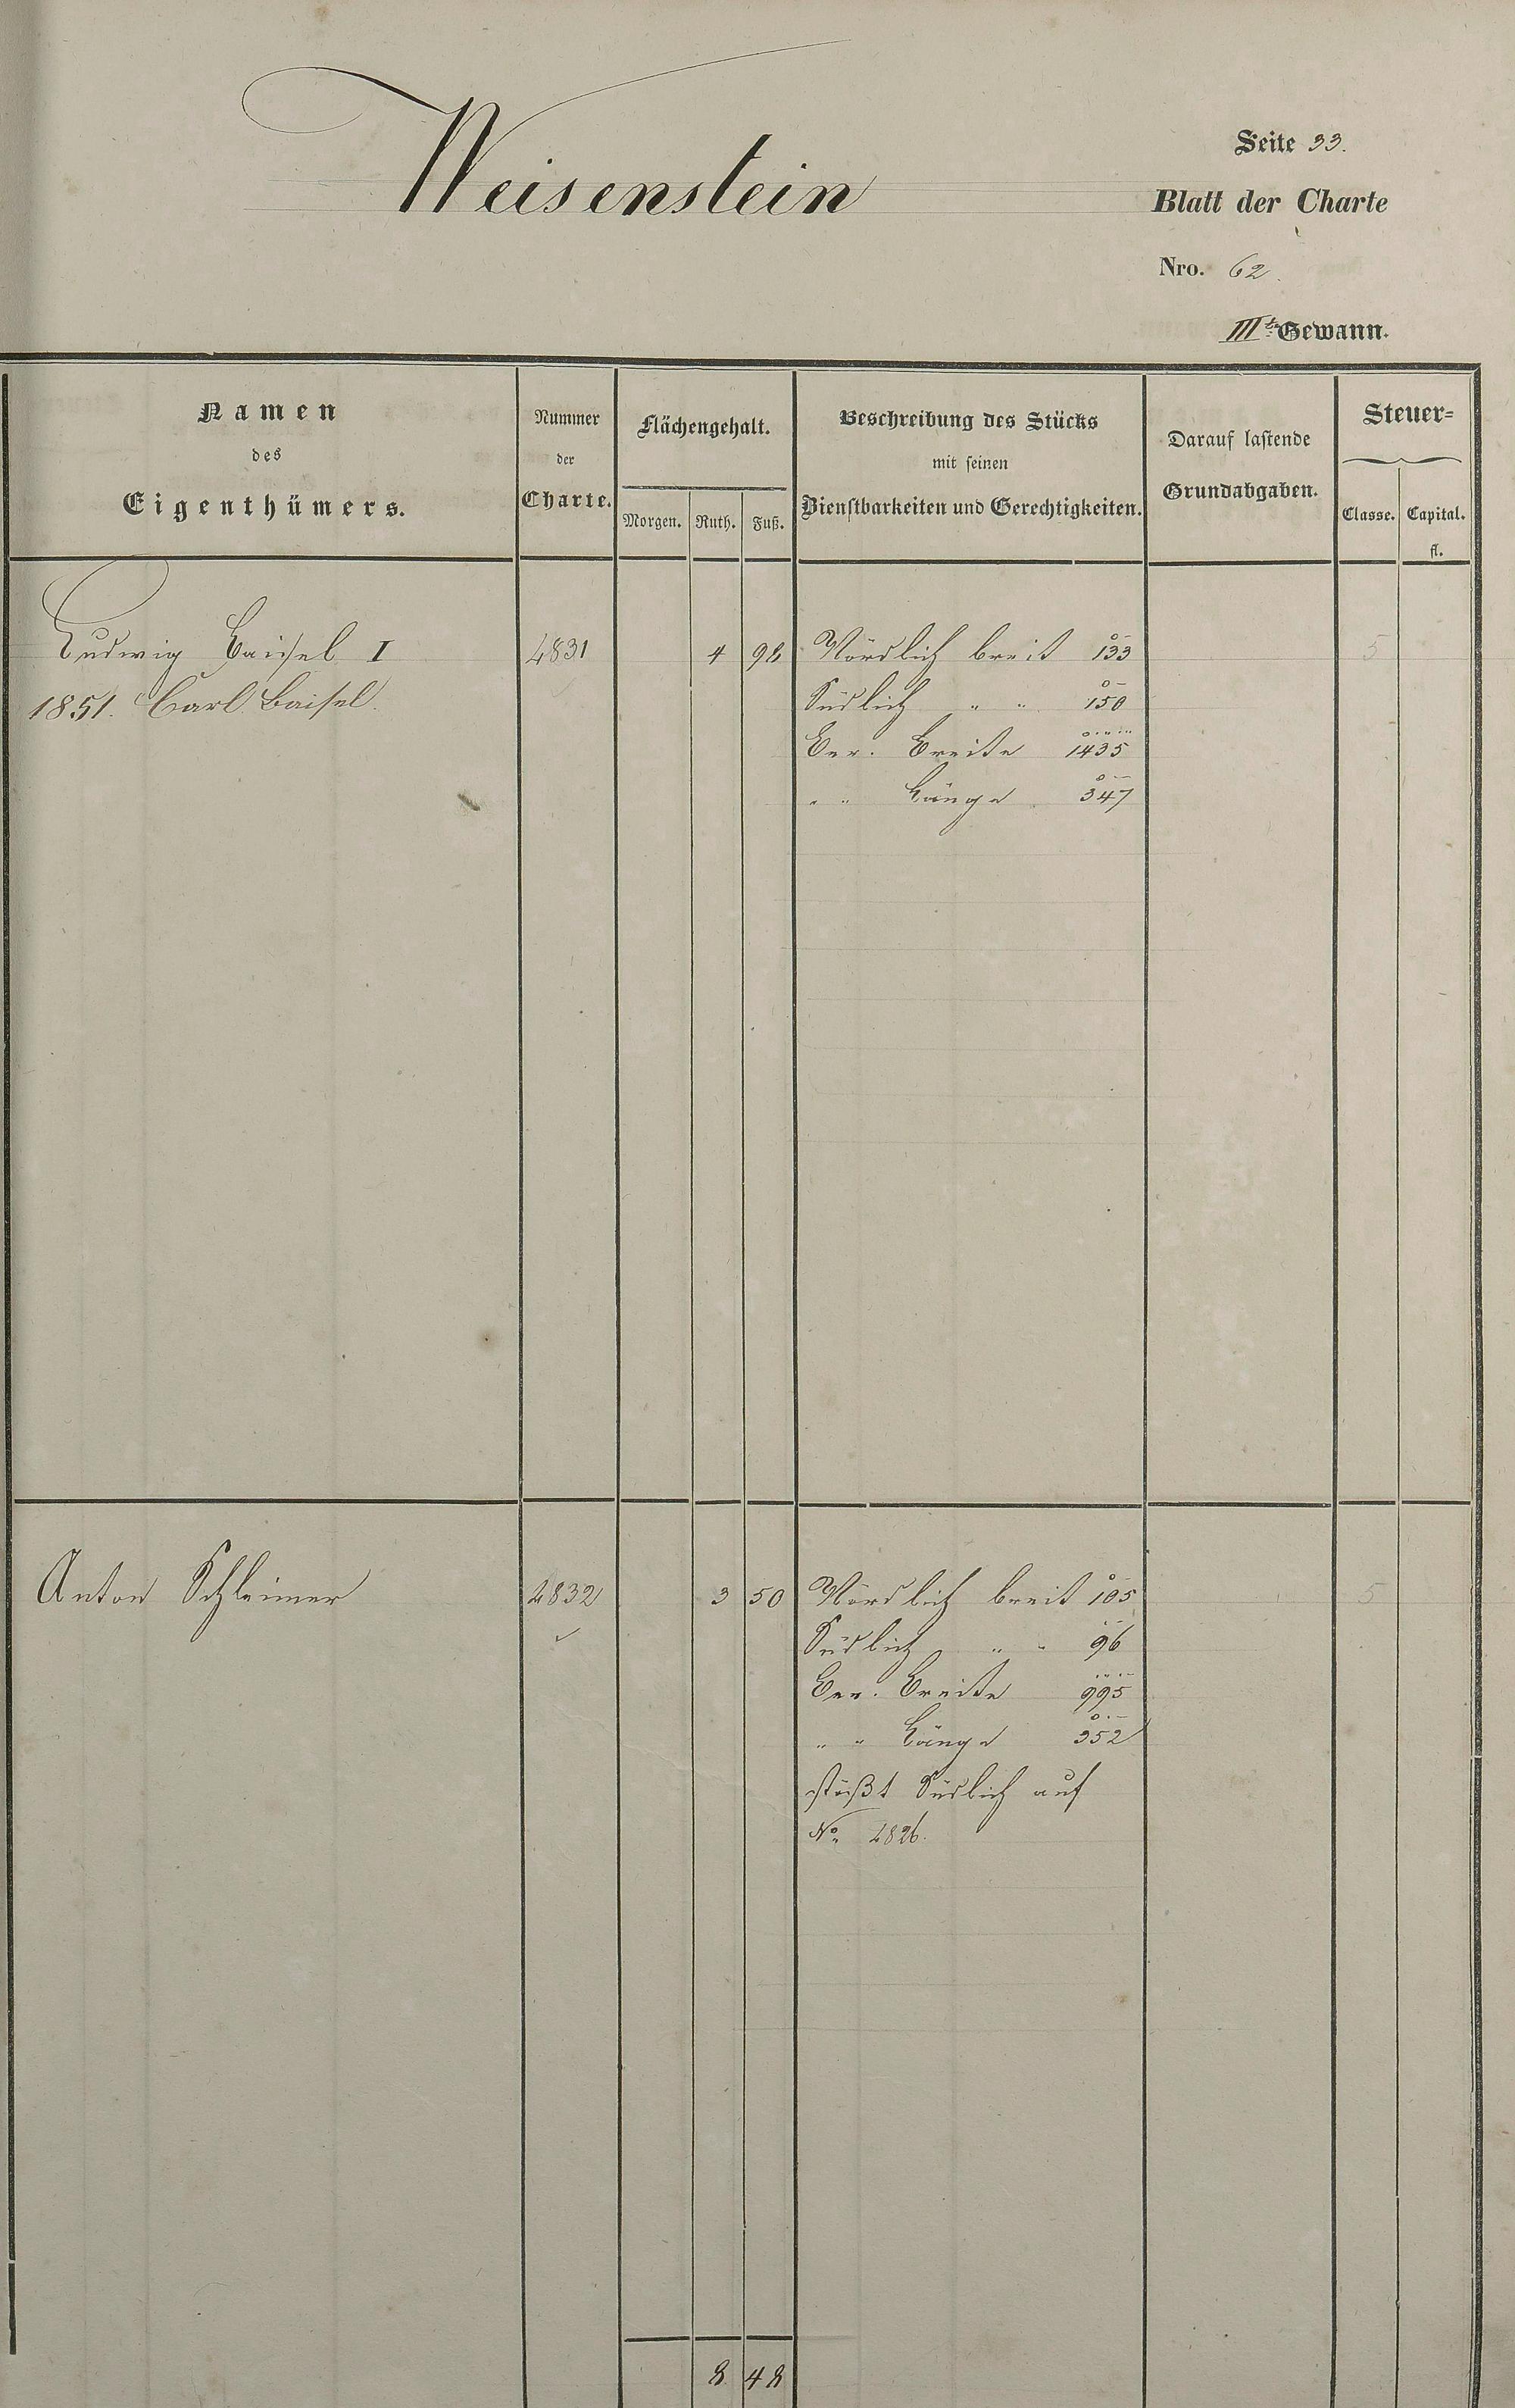 Weisenstein
Seite 33.
Blatt der Charte
Nro. 62.
III.te Gewann.
Namen
des
Eigenthümers.
Nummer
der
Charte.
Flächengehalt.
Morgen. Ruth. Fuß.
Beschreibung des Stücks
mit seinen
Dienstbarkeiten und Gerechtigkeiten.
Darauf lastende
Grundabgaben.
Steuer=
Classe. Capital.
fl.
Ludwig Baisel I 4831 4 98 Nördlich breit 133 5
1851. Carl Baisel. Südlich " " 150
Ber. Breite 1435
" " Länge 347
Anton Schleimer 4832 3 50 Nördlich breit 105 5
Südlich " " 96
Ber. Breite 995
" " Länge 352
stößt Südlich auf
No 4826.
8 48